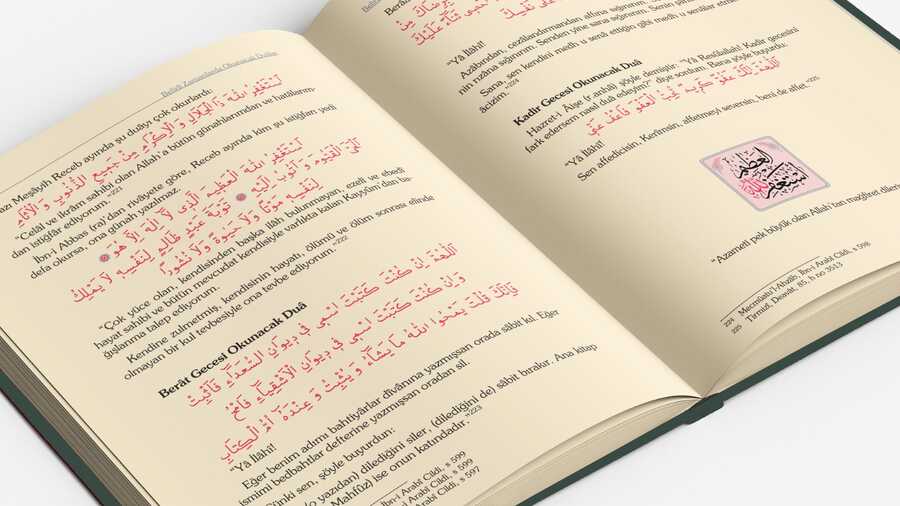 Belirli Zamanlarda Okunacak Dualar
azı Meşâyih Receb ayında şu duâyı çok okurlardı:
اَسْتَغْفِرُ اللّٰهَ ذَا الْجَلَالِ وَ الْاِكْرَامِ مِنْ جَمِيعِ الذُّنُوبِ وَ الْاٰثَامِ
“Celâl ve ikrâm sahibi olan Allah'a bütün günahlarımdan ve hatâlarım-
dan istiğfâr ediyorum.”221
İbn-i Abbas (ra)'dan rivâyete göre, Receb ayında kim şu istiğfarı yedi
defa okursa, ona günah yazılmaz.
اَسْتَغْفِرُ اللّٰهَ الْعَظِيمَ الَّذِى لَا اِلٰهَ اِلَّا هُوَ
الْحَىَّ الْقَيُّومَ وَ اَتُوبُ اِلَيْهِ تَوْبَةَ عَبْدٍ ظَالِمٍ لِنَفْسِهِ لَا يَمْلِكُ
لِنَفْسِهِ مَوْتًا وَلَا حَيٰوةً وَ لَا نُشُورًا
“Çok yüce olan, kendisinden başka ilâh bulunmayan, ezelî ve ebedî
hayat sahibi ve bütün mevcudat kendisiyle varlıkda kalan Kayyûm'dan ba-
ğışlanma talep ediyorum.
Kendine zulmetmiş, kendisinin hayatı, ölümü ve ölüm sonrası elinde
olmayan bir kul tevbesiyle ona tevbe ediyorum.”222
Berât Gecesi Okunacak Duâ
اَللّٰهُمَّ اِنْ كُنْتَ كَتَبْتَ اسْمِى فِى دِيوَانِ السُّعَدَاءِ فَاَثْبِتْ
وَاِنْ كُنْتَ كَتَبْتَ اسْمِى فِى دِيوَانِ الْاَشْقِيَاءِ فَامْحُ
فَاِنَّكَ قُلْتَ يَمْحُوا اللّٰهُ مَا يَشَاءُ وَ يُثْبِتُ وَ عِنْدَهُ اُمُّ الْكِتَابِ
“Yâ İlâhî!
Eğer benim adımı bahtiyârlar dîvânına yazmışsan orada sâbit kıl. Eğer
ismimi bedbahtlar defterine yazmışsan oradan sil.
Çünki sen, şöyle buyurdun:
(o yazıdan) dilediğini siler, (dilediğini de) sâbit bırakır. Ana kitap
Mahfûz) ise onun katındadır.”223
İbn-i Arabî Cildi, s 599
Arabî Cildi, s 599
Arabî Cildi, s 597
“Yâ İlâhî!
Azâbından, cezâlandırmandan affına sığınırım.
nin rızâna sığınırım. Senden yine sana sığınırım. Senin
Sana, sen kendini medh u senâ ettiğin gibi medh u senâlar etmek
âcizim.”224
Kadir Gecesi Okunacak Duâ
Hazret-i Âişe (r.anhâ) şöyle demiştir: “Yâ Resûlallah! Kadir gecesini
fark edersem nasıl duâ edeyim?” diye sordum. Bana şöyle buyurdu:
اَللّٰهُمَّ اِنَّكَ عَفُوٌّ كَرِيمٌ تُحِبُّ الْعَفْوَ فَاعْفُ عَنِّى
“Yâ İlâhî!
Sen affedicisin, Kerîmsin, affetmeyi seversin, beni de affet.”225
“Azameti pek büyük olan Allah'tan mağfiret
224 Mecmûatu'l-Ahzâb, İbn-i Arabî Cildi, s 598
225 Tirmizî, Deavât, 85, h no 3513